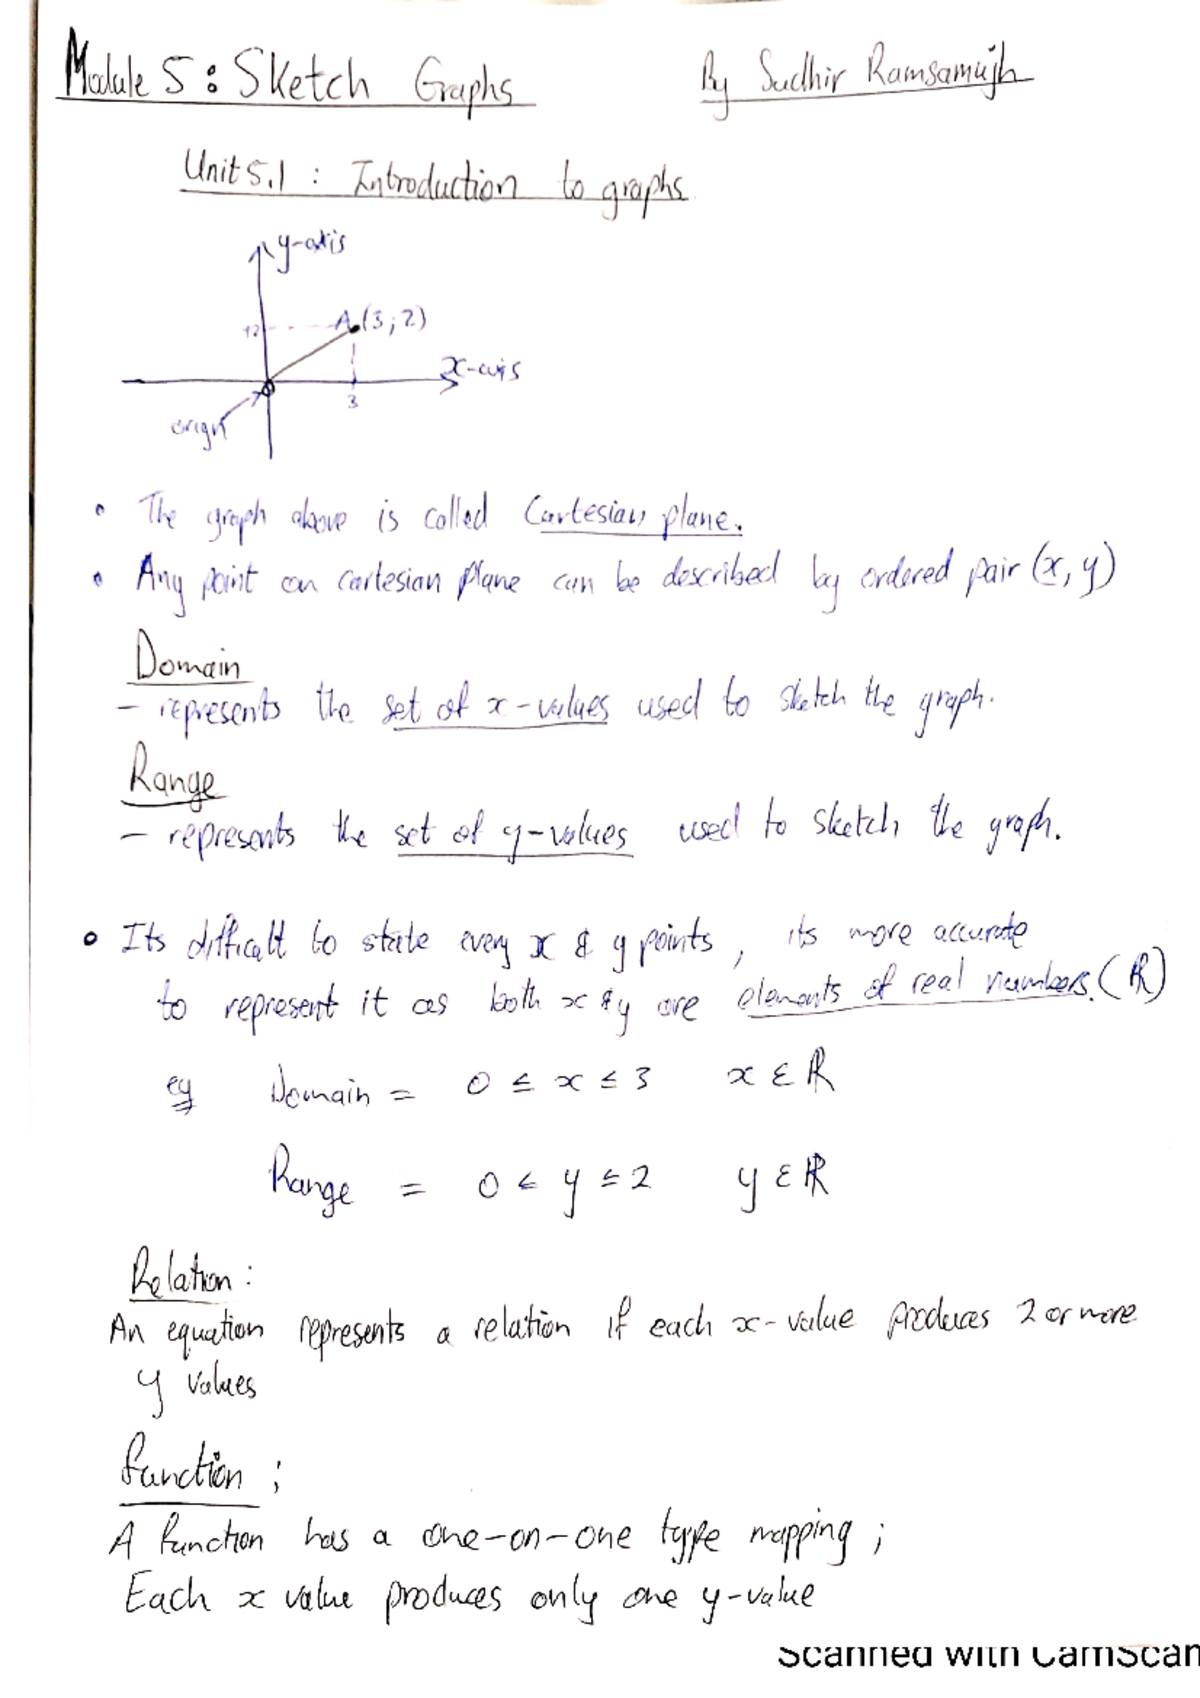 Module 5: Sketch Graphs
By Sudhir Ramsamujh
Unit 5.1 : Introduction to graphs
y-axis
2
A (3;2)
x-axis
3
origin
• The graph above is called Cartesian plane.
• Any point on cartesian plane can be described by ordered pair (x, y)
Domain
- represents the set of x-values used to sketch the graph.
Range
- represents the set of y-values used to sketch the graph.
• Its difficult to state every x & y points, its more accurate
to represent it as both x & y are elements of real numbers. (ℝ)
eg Domain = 0 ≤ x ≤ 3 x ∈ ℝ
Range = 0 ≤ y ≤ 2 y ∈ ℝ
Relation:
An equation represents a relation if each x-value produces 2 or more
y values
Function ;
A function has a one-on-one type mapping ;
Each x value produces only one y-value
Scanned with CamScan